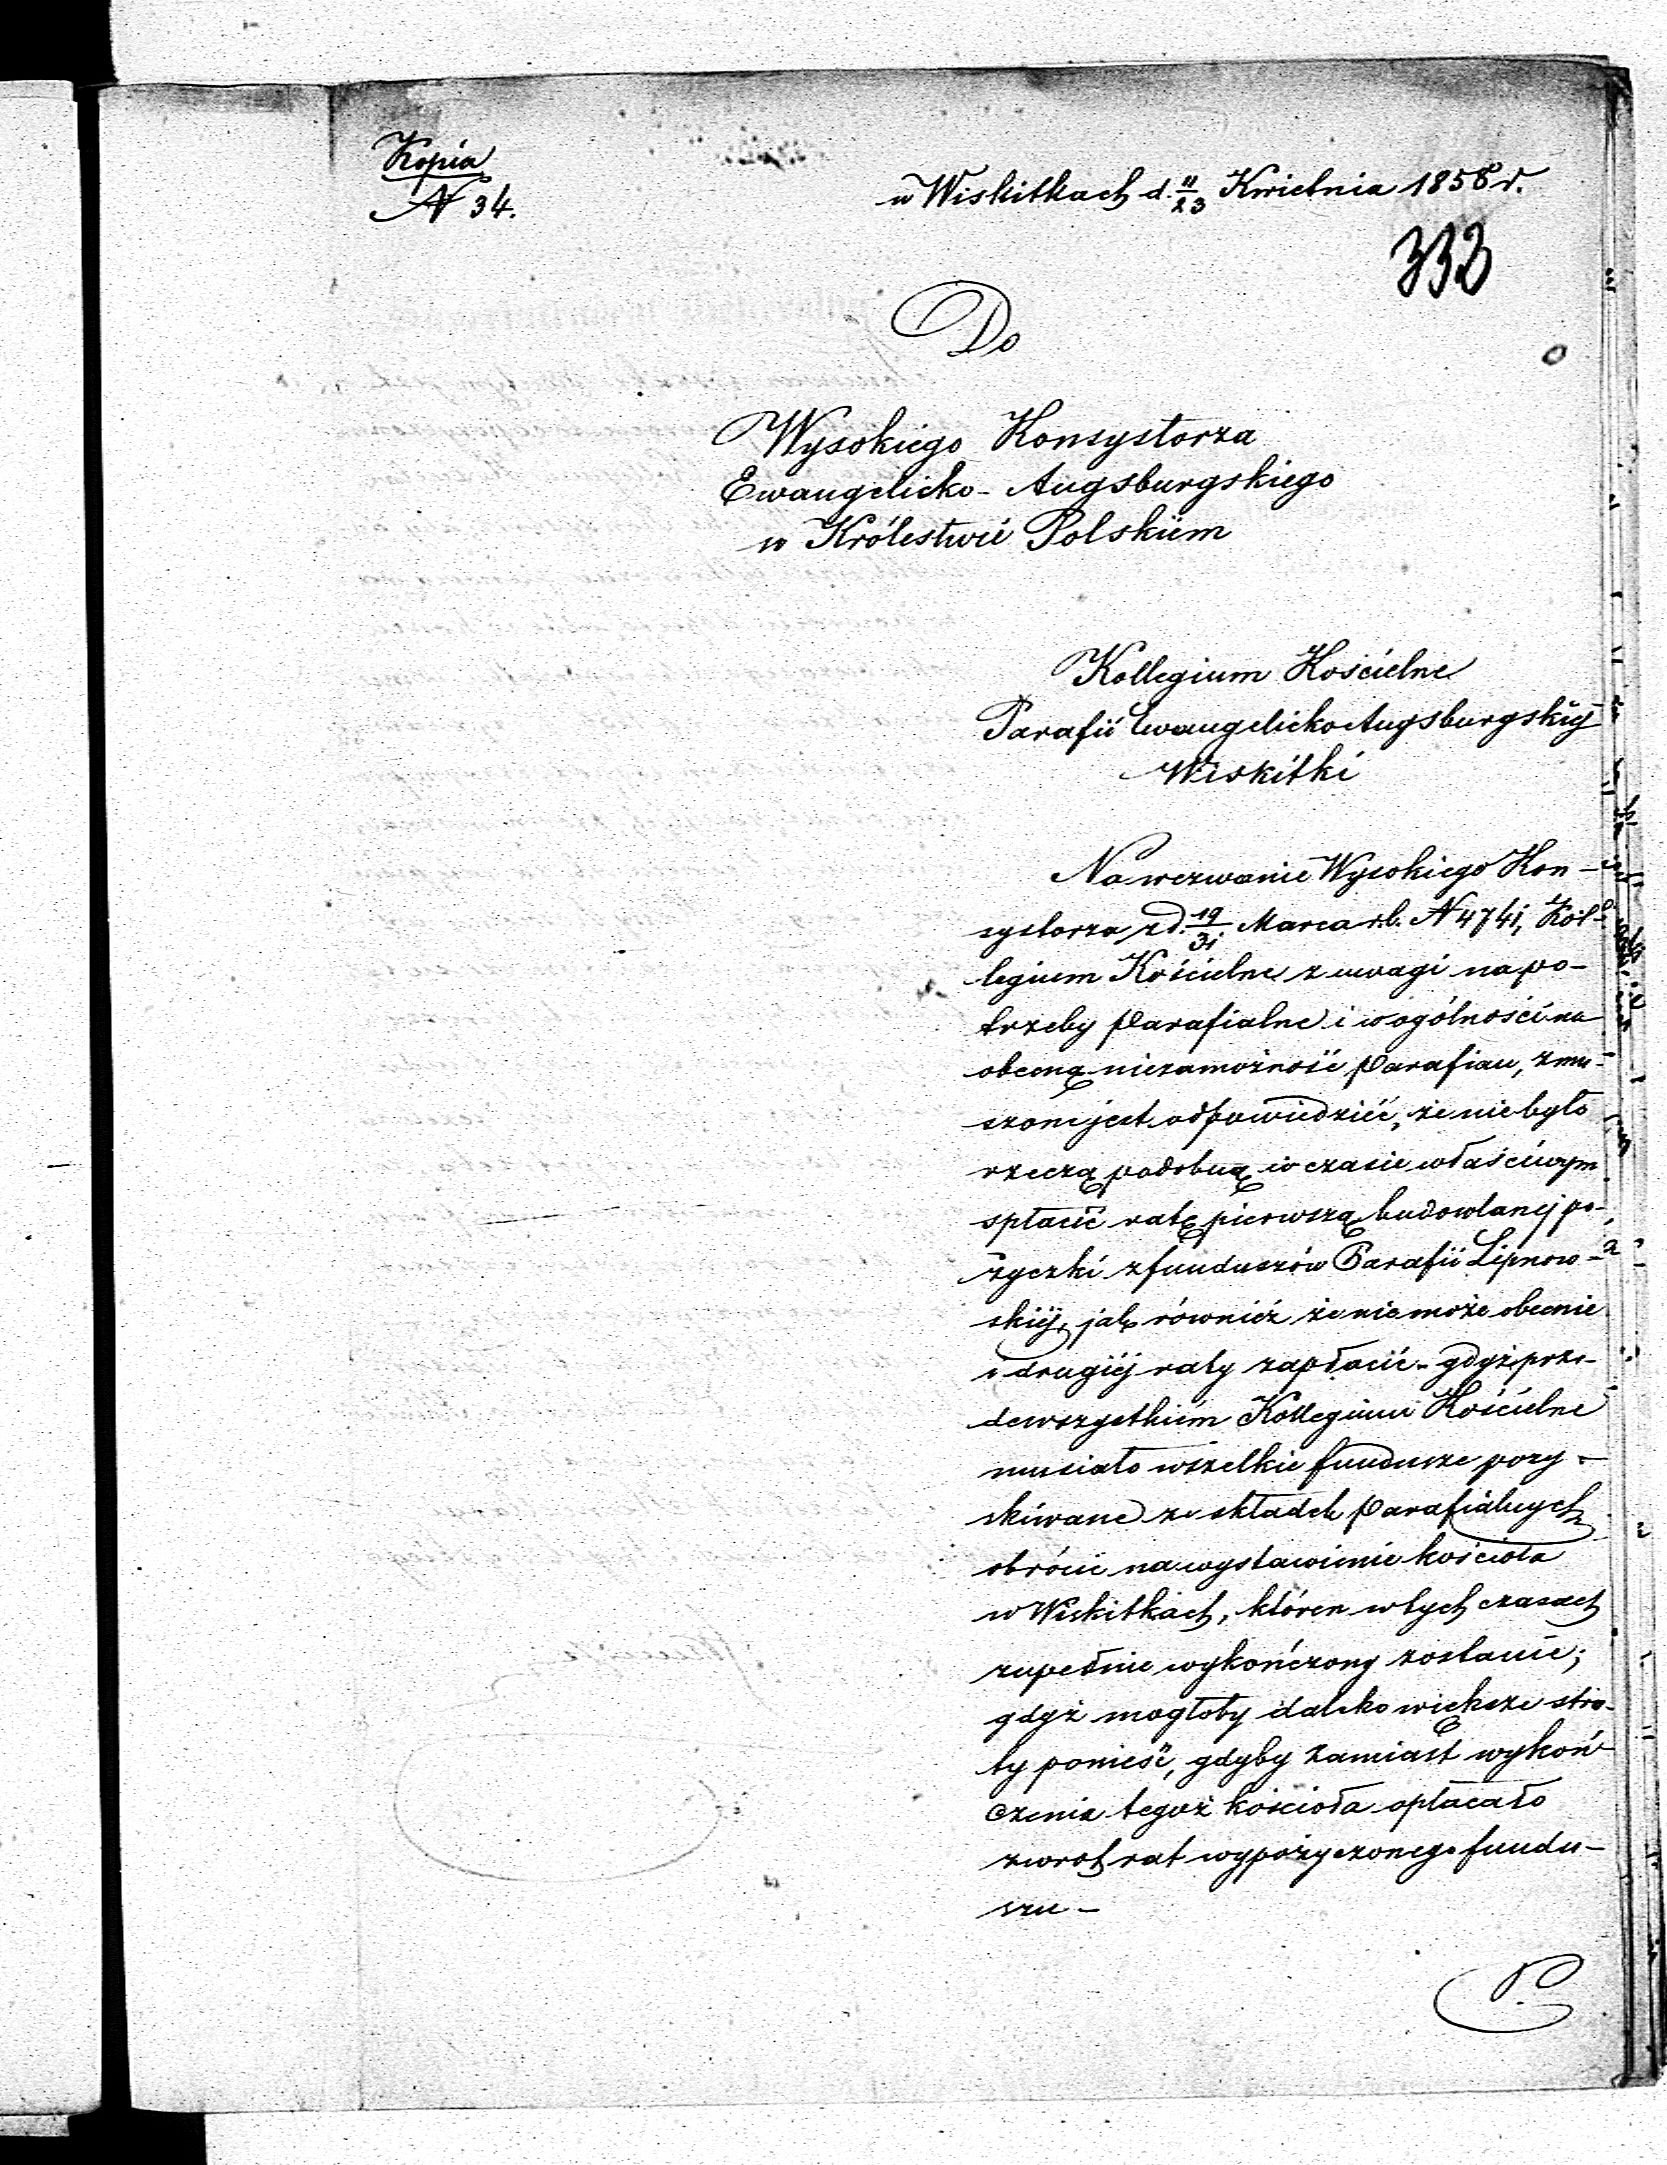 Kopia
N 34.
w Wiskitkach d. 11/23 Kwietnia 1858 r.
332
Do
Wysokiego Konsystorza
Ewangelicko-Augsburgskiego
w Królestwie Polskiem
Kollegium Kościelne
Parafii Ewangelicko Augsburgskiéj
Wiskitki
Na wezwanie Wysokiego Kon-
systorza z d. 19/31 Marca r.b. N 474j, Kol-
legium Kościelne z uwagi na po-
trzeby parafialne i w ogólności na
obecną niezamożność parafian, zmu-
szone jest odpowiedzieć, że nie było
rzeczą podobną w czasie właściwym
spłacić ratę pierwszą budowlanej po-
życzki z funduszów Parafii Lipnow-
skiéj, jak również że nie może obecnie
i drugiéj raty zapłacić - gdyż prze-
dewszystkiem Kollegium Kościelne
musiało wszelkie fundusze pozy-
skiwane ze składek parafialnych
obrócić na wystawienie kościoła
w Wiskitkach, któren w tych czasach
zupełnie wykończony zostanie;
gdyż mogłoby daleko większe stra-
ty ponieść, gdyby zamiast wykoń-
czenia tegoż kościoła opłacało
zwrot rat wypożyczonego fundu-
szu -